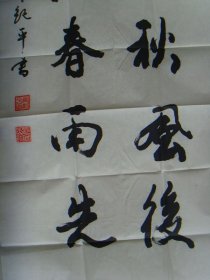 秋風後
春雨先
平書